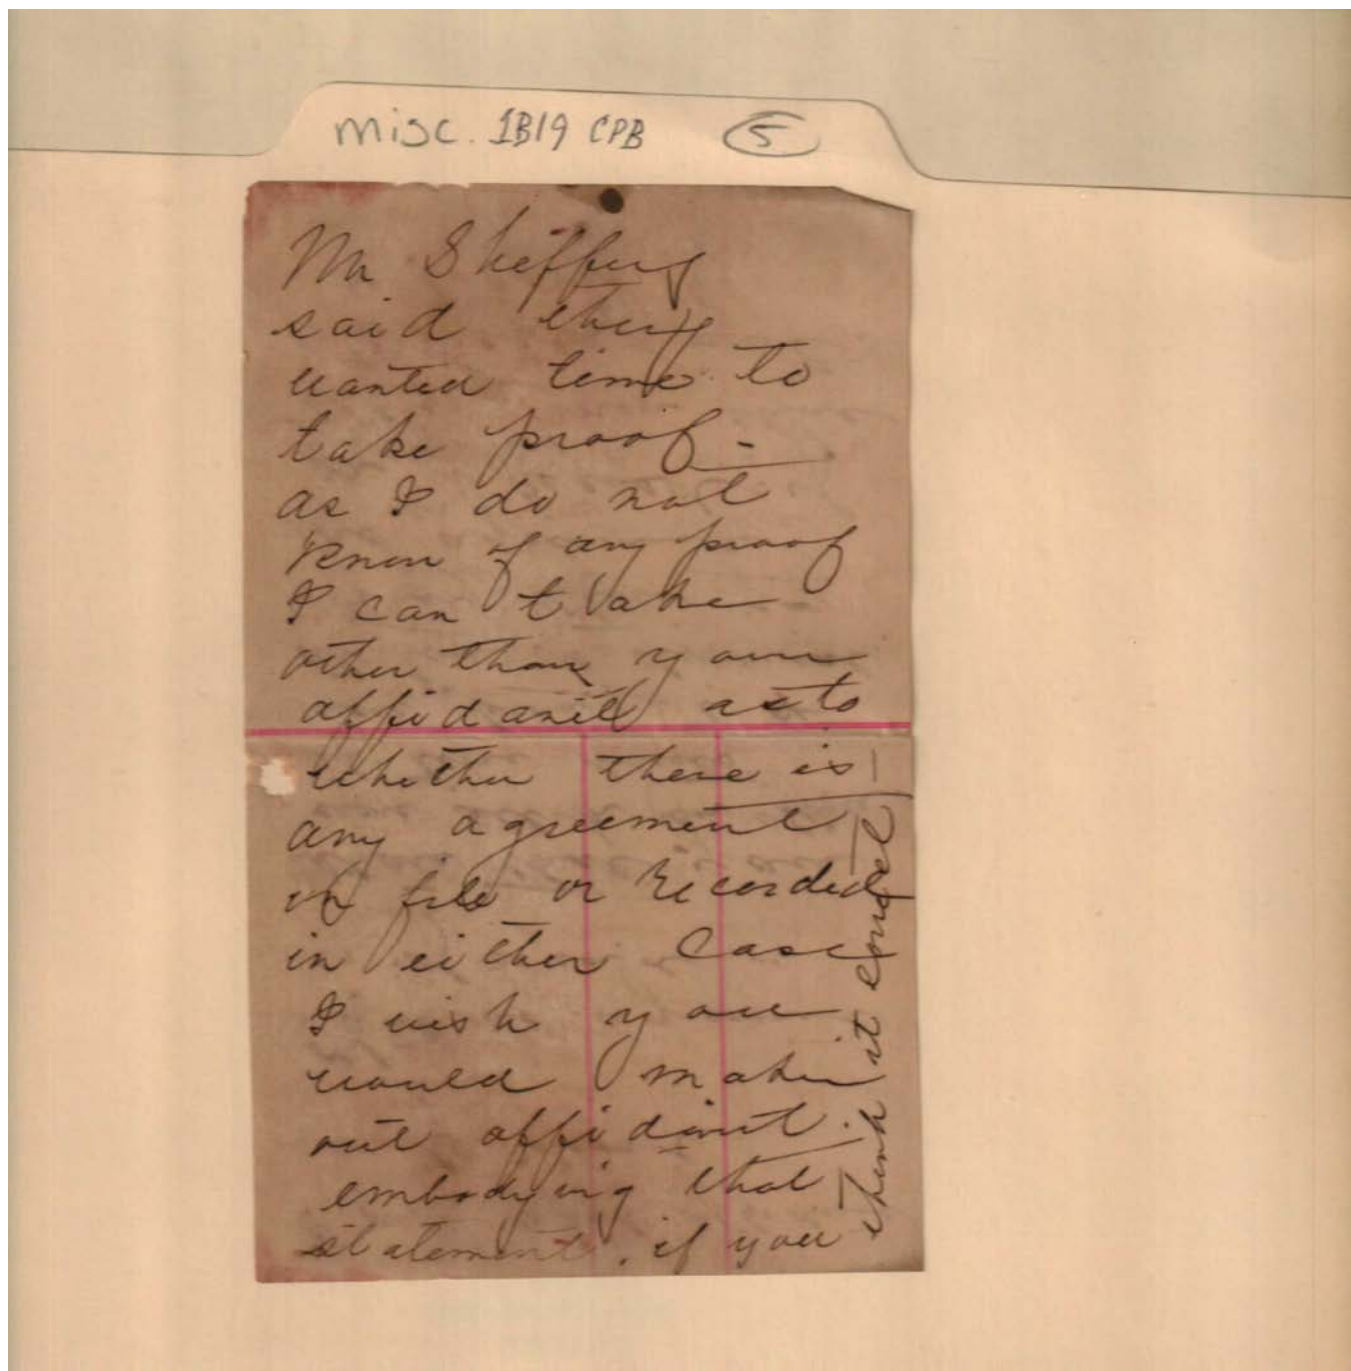 misc. 1B19 CPB 5
Mr Sheffey
said they
wanted time to
take proof -
as I do not
know of any proof
I can take
other than your
affidavit as to
whether there is
any agreement
on file or recorded
in either case
I wish you
would make
out affidavit.
embodying that
statement. if you
think it